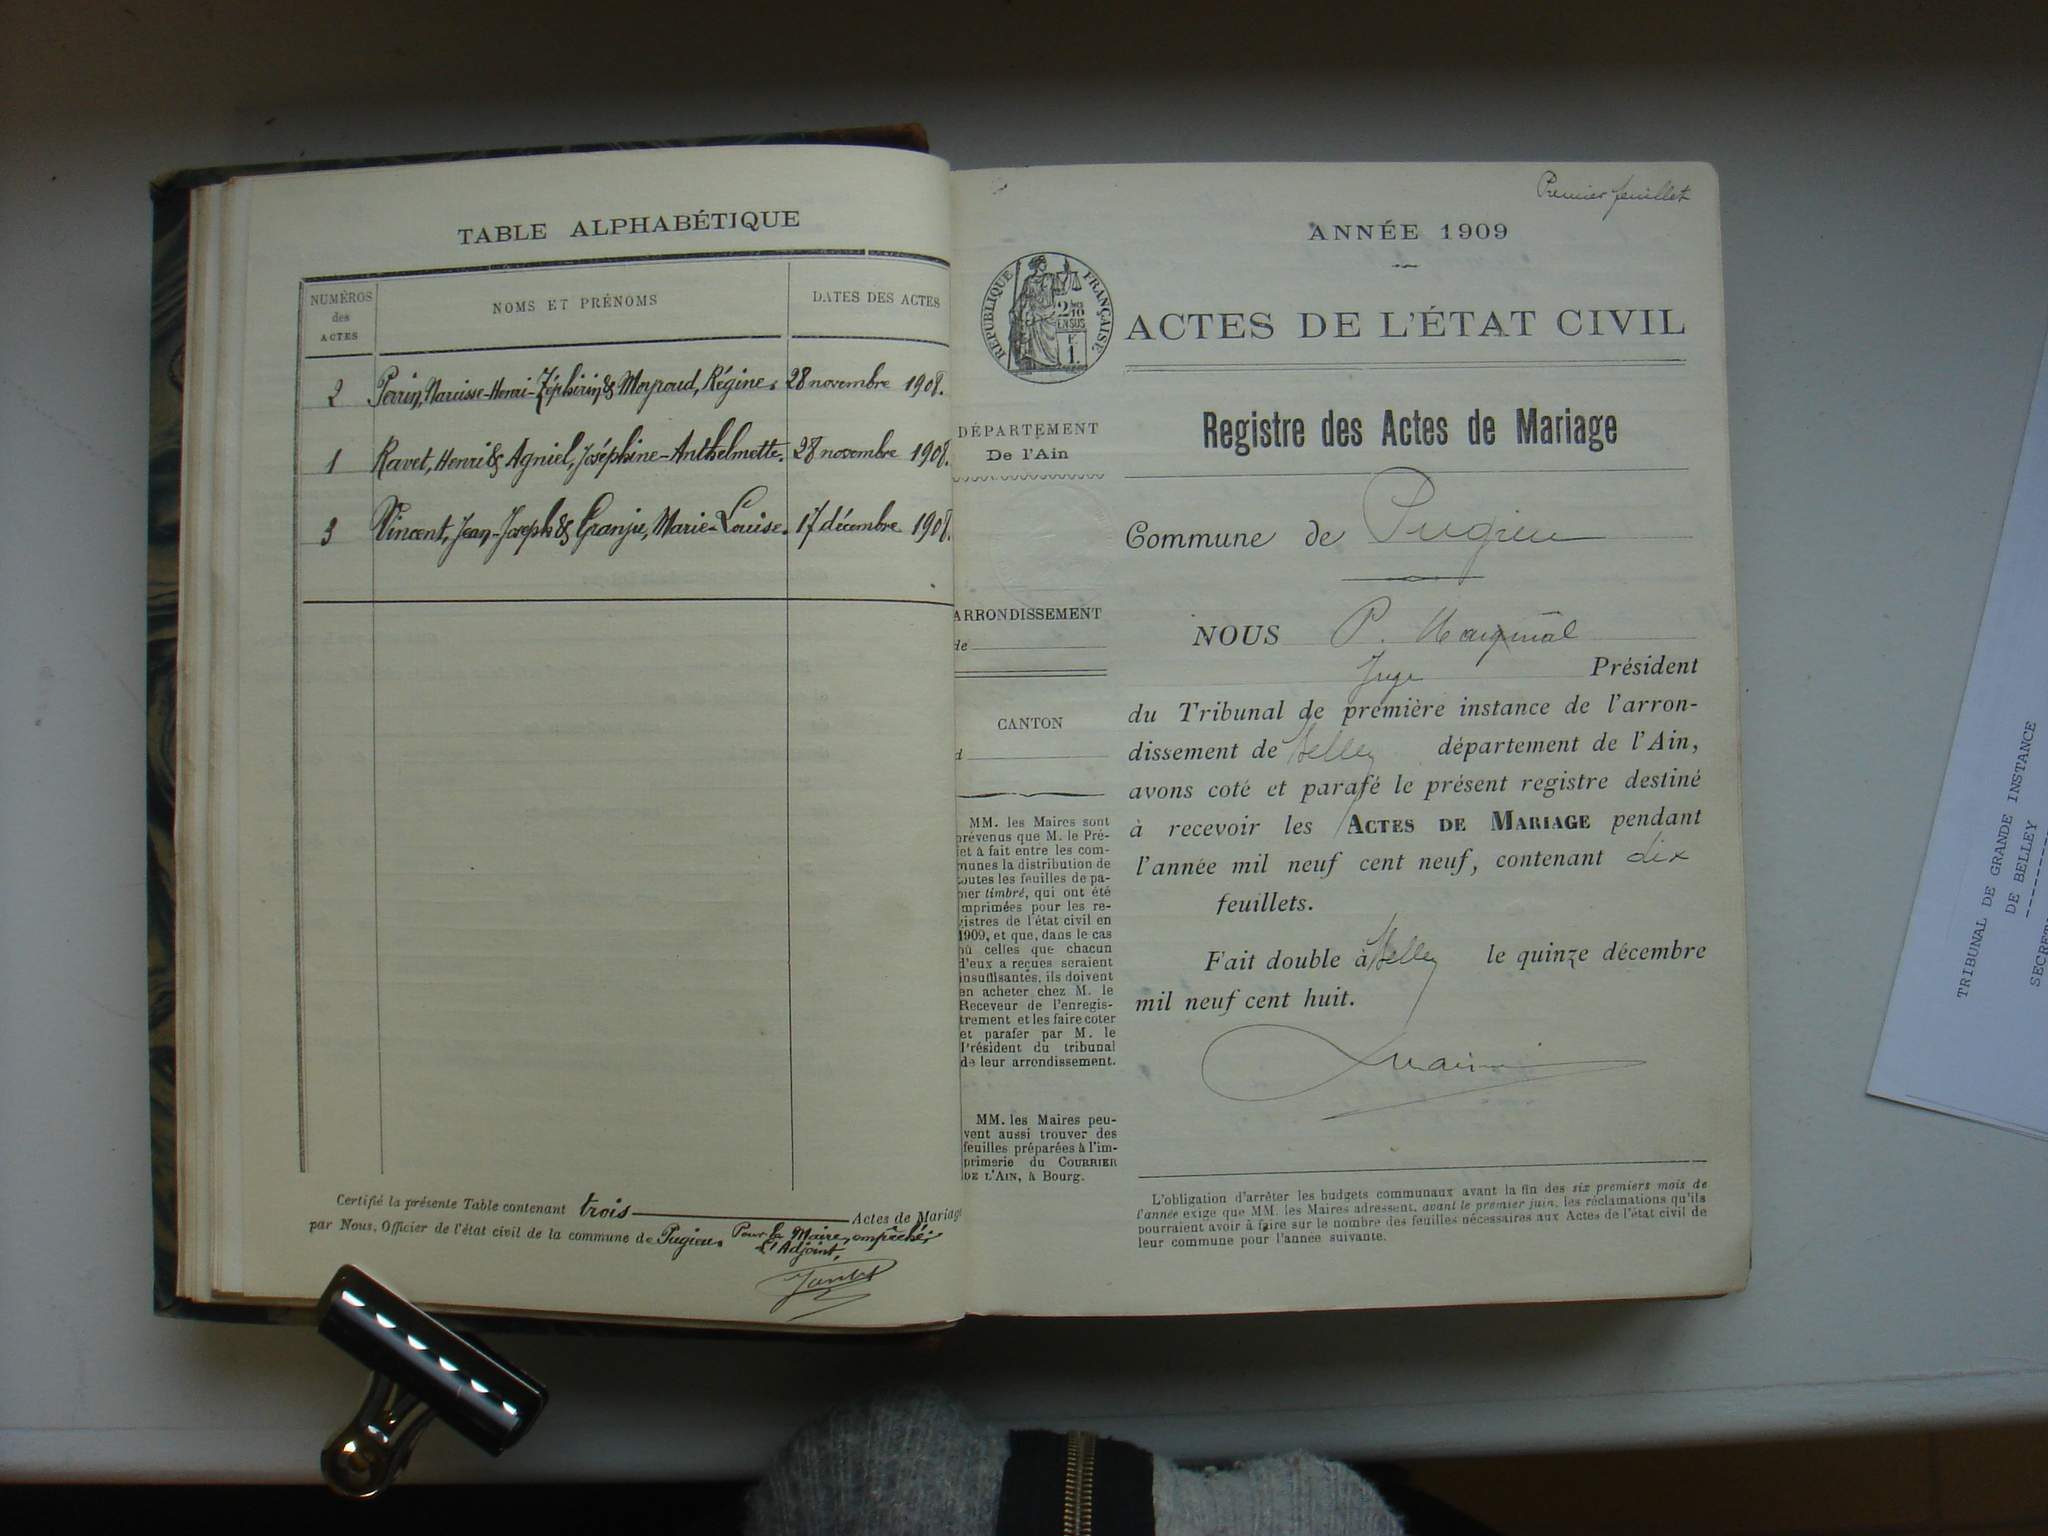 TABLE ALPHABÉTIQUE
NUMÉROS
des
ACTES
NOMS ET PRÉNOMS
DATES DES ACTES
2 Perrin, Narcisse-Henri-Zéphirin & Moyroud, Régine. 28 novembre 1908.
1 Ravet, Henri & Agniel, Joséphine-Anthelmette. 28 novembre 1908.
3 Vincent, Jean-Joseph & Granju, Marie-Louise. 17 décembre 1908.
Certifié la présente Table contenant trois Actes de Mariage
par Nous, Officier de l'état civil de la commune de Pugieu. Pour le Maire, empêché,
L'Adjoint,
Premier feuillet
ANNÉE 1909
RÉPUBLIQUE FRANÇAISE
2/10
EN SUS
1
ACTES DE L'ÉTAT CIVIL
DÉPARTEMENT
De l'Ain
ARRONDISSEMENT
de
CANTON
d
MM. les Maires sont
prévenus que M. le Pré-
et à fait entre les com-
munes la distribution de
toutes les feuilles de pa-
pier timbré, qui ont été
imprimées pour les re-
gistres de l'état civil en
1909, et que, dans le cas
où celles que chacun
d'eux a reçues seraient
insuffisantes, ils doivent
en acheter chez M. le
Receveur de l'enregis-
trement et les faire coter
et parafer par M. le
Président du tribunal
de leur arrondissement.
MM. les Maires peu-
vent aussi trouver des
feuilles préparées à l'im-
primerie du COURRIER
DE L'AIN, à Bourg.
Registre des Actes de Mariage
Commune de Pugieu
NOUS P.
Juge Président
du Tribunal de première instance de l'arron-
dissement de Belley département de l'Ain,
avons coté et parafé le présent registre destiné
à recevoir les ACTES DE MARIAGE pendant
l'année mil neuf cent neuf, contenant dix
feuillets.
Fait double à Belley le quinze décembre
mil neuf cent huit.
L'obligation d'arrêter les budgets communaux avant la fin des six premiers mois de
l'année exige que MM. les Maires adressent, avant le premier juin, les réclamations qu'ils
pourraient avoir à faire sur le nombre des feuilles nécessaires aux Actes de l'état civil de
leur commune pour l'année suivante.
TRIBUNAL DE GRANDE INSTANCE
DE BELLEY